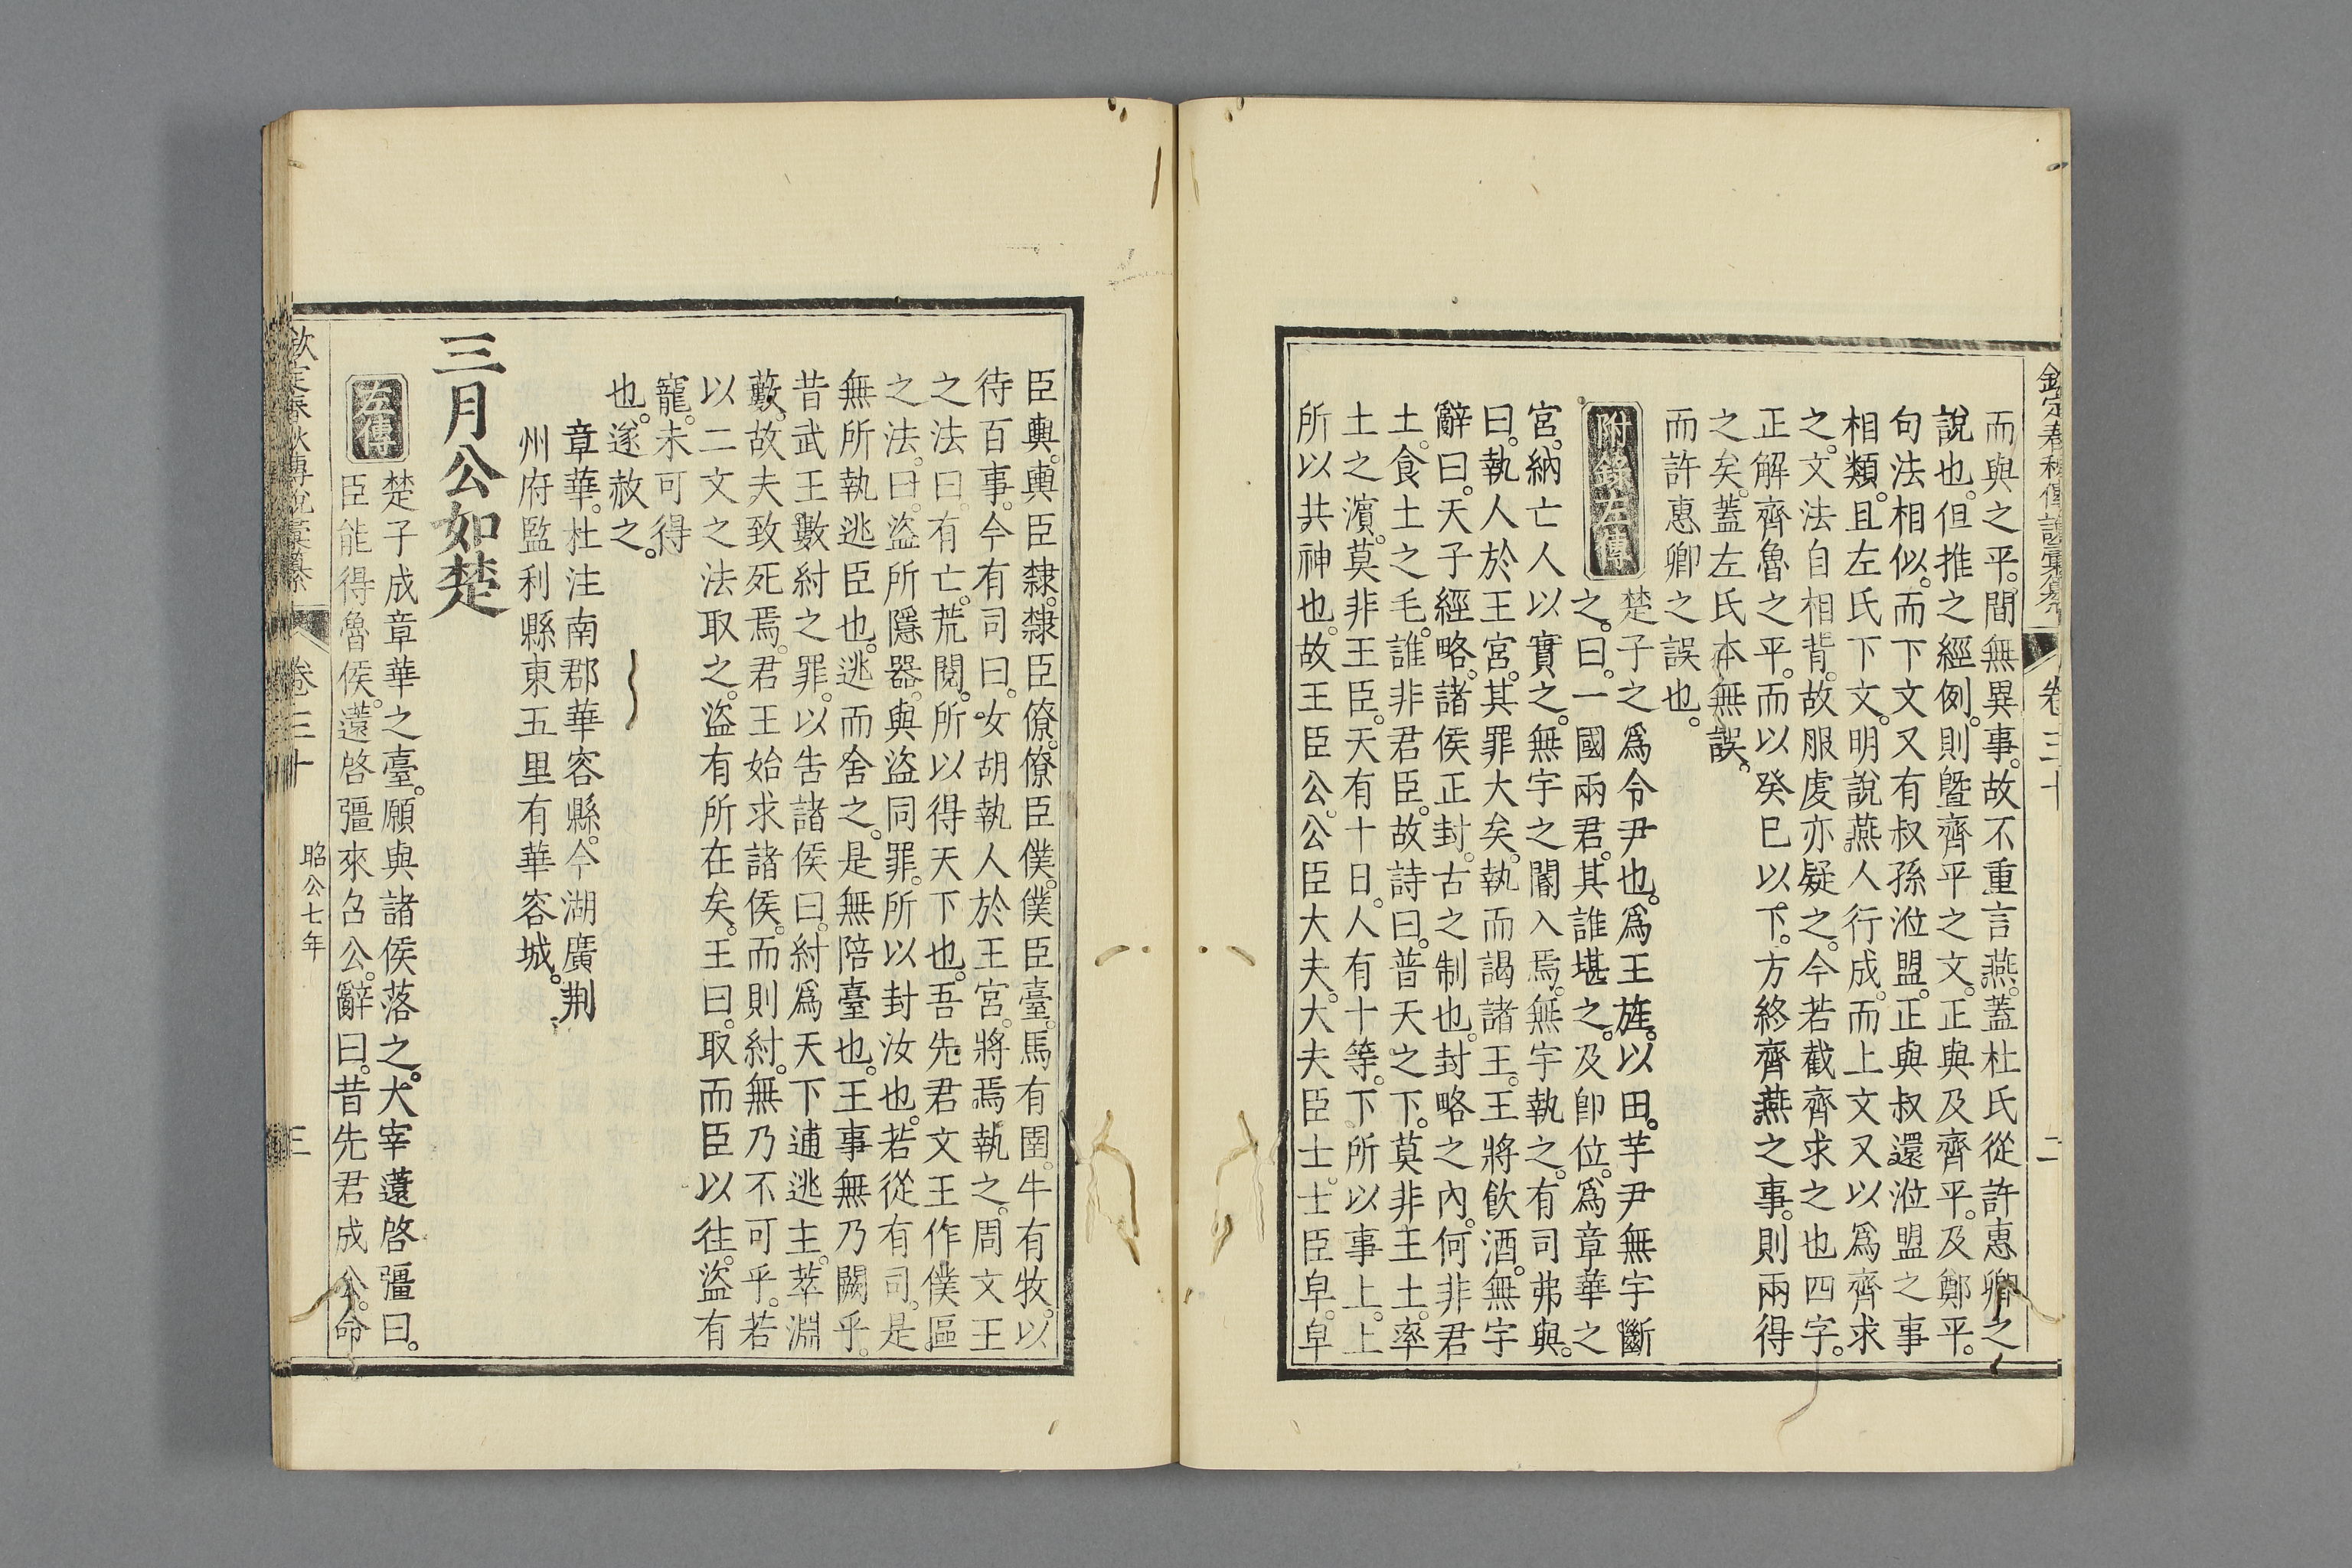 欽定春秋傳說彙纂 卷三十 二
而與之平。間無異事。故不重言燕。蓋杜氏從許惠卿之
說也。但推之經例。則曁齊平之文。正與及齊平。及鄭平。
句法相似。而下文又有叔孫涖盟。正與叔還涖盟之事
相類。且左氏下文。明說燕人行成。而上文又以爲齊求
之。文法自相背。故服虔亦疑之。今若截齊求之也四字。
正解齊魯之平。而以癸巳以下。方終齊燕之事。則兩得
之矣。蓋左氏本無誤。
而許惠卿之誤也。
附錄左傳
楚子之爲令尹也。爲王旌。以田。芋尹無宇斷
之。曰。一國兩君。其誰堪之。及卽位。爲章華之
宮。納亡人以實之。無宇之閽入焉。無宇執之。有司弗與。
曰。執人於王宮。其罪大矣。執而謁諸王。王將飮酒。無宇
辭曰。天子經略。諸侯正封。古之制也。封略之內。何非君
土。食土之毛。誰非君臣。故詩曰。普天之下。莫非王土。率
土之濱。莫非王臣。天有十日。人有十等。下所以事上。上
所以共神也。故王臣公。公臣大夫。大夫臣士。士臣皁。皁
臣輿。輿臣隸。隸臣僚。僚臣僕。僕臣臺。馬有圉。牛有牧。以
待百事。今有司曰。女胡執人於王宮。將焉執之。周文王
之法曰。有亡。荒閱。所以得天下也。吾先君文王作僕區
之法。曰。盜所隱器。與盜同罪。所以封汝也。若從有司。是
無所執逃臣也。逃而舍之。是無陪臺也。王事無乃闕乎。
昔武王數紂之罪。以吿諸侯曰。紂爲天下逋逃主。萃淵
藪。故夫致死焉。君王始求諸侯。而則紂。無乃不可乎。若
以二文之法取之。盜有所在矣。王曰。取而臣以往。盜有
寵。未可得
也。遂赦之。
章華。杜注南郡華容縣。今湖廣荆
州府監利縣東五里有華容城。
三月公如楚
左傳
楚子成章華之臺。願與諸侯落之。大宰薳啓彊曰。
臣能得魯侯。薳啓彊來召公。辭曰。昔先君成公。命
欽定春秋傳說彙纂 卷三十 昭公七年 三